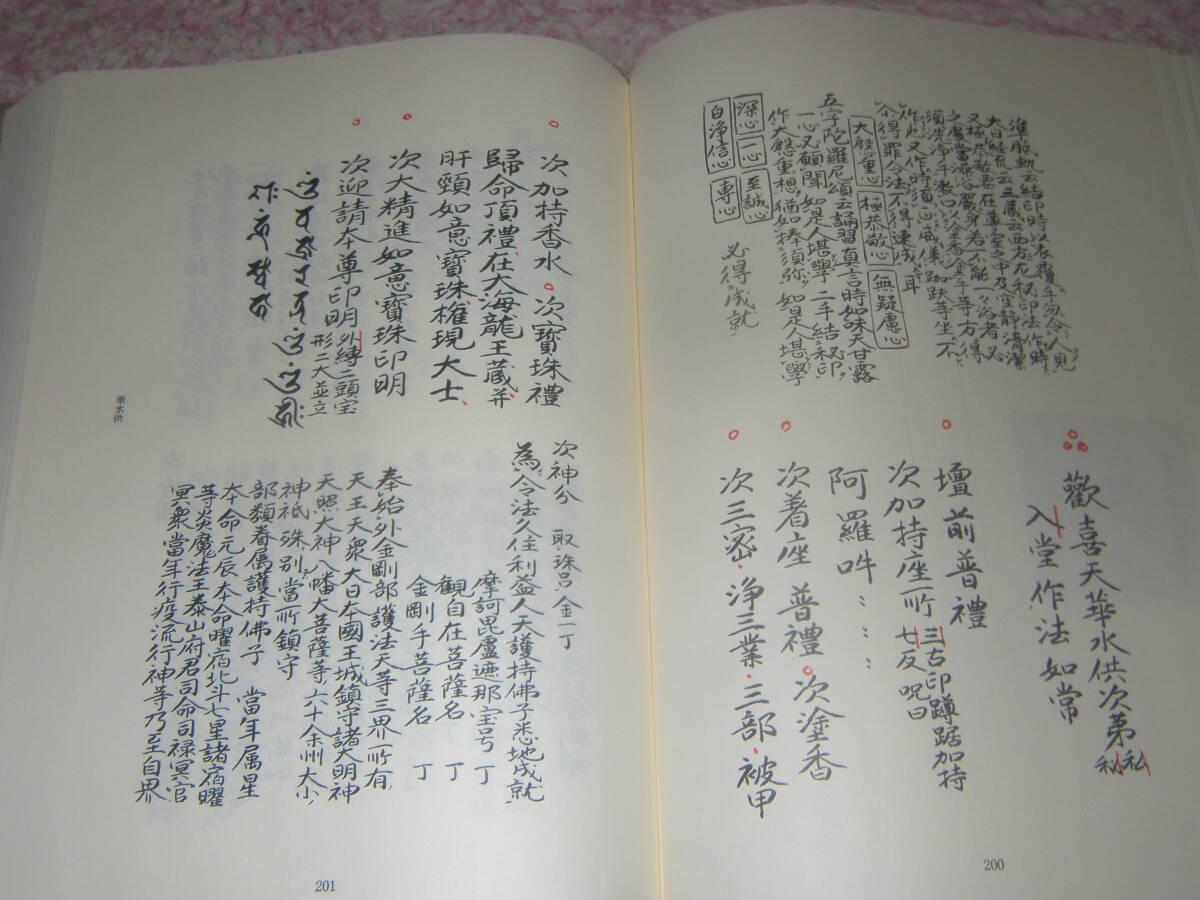 準胝軌云結印時以衣覆手勿令人見
大日経疏云三蔵云西方尤秘印法作時
又極恭敬要在尊室之中及空静清潔
之處當澡浴嚴身若不能一一浴者必
須洗浄手漱口以塗香塗手等方得
作也又作時須正威儀跏趺等坐不
尓得罪令法不得速成耳
大慇重心 極恭敬心 無疑慮心
五字陀羅尼頌云誦習真言時如味天甘露
一心又願聞如是人堪學二手結秘印
作大慇重想猶如捧須弥如是人堪學
深心 一心 至誠心
白浄信心 専心
必得成就
歡喜天華水供次第 私秘
入堂作法如常
壇前普禮
次加持座所 三古印蹲踞加持 七反呪曰
阿羅吽
次着座 普禮 次塗香
次三密 浄三業 三部 被甲
200
次加持香水 次寶珠禮
歸命頂禮在大海龍王蔵并
肝頸如意寶珠権現大士
次大精進如意寶珠印明
次迎請本尊印明 外縛二頭宝形二大並立
次神分 取珠呂金一丁
為令法久住利益人天護持佛子悉地成就
摩訶毘盧遮那宝号 丁
観自在菩薩名 丁
金剛手菩薩名 丁
奉始外金剛部護法天等三界所有
天王天衆大日本國王城鎮守諸大明神
天照大神八幡大菩薩等六十余州大小
神祇殊別當所鎮守
部類眷属護持佛子 當年属星
本命元辰本命曜宿北斗七星諸宿曜
等炎魔法王泰山府君司命司禄冥官
冥衆當年行疫流行神等乃至自界
華水供
201